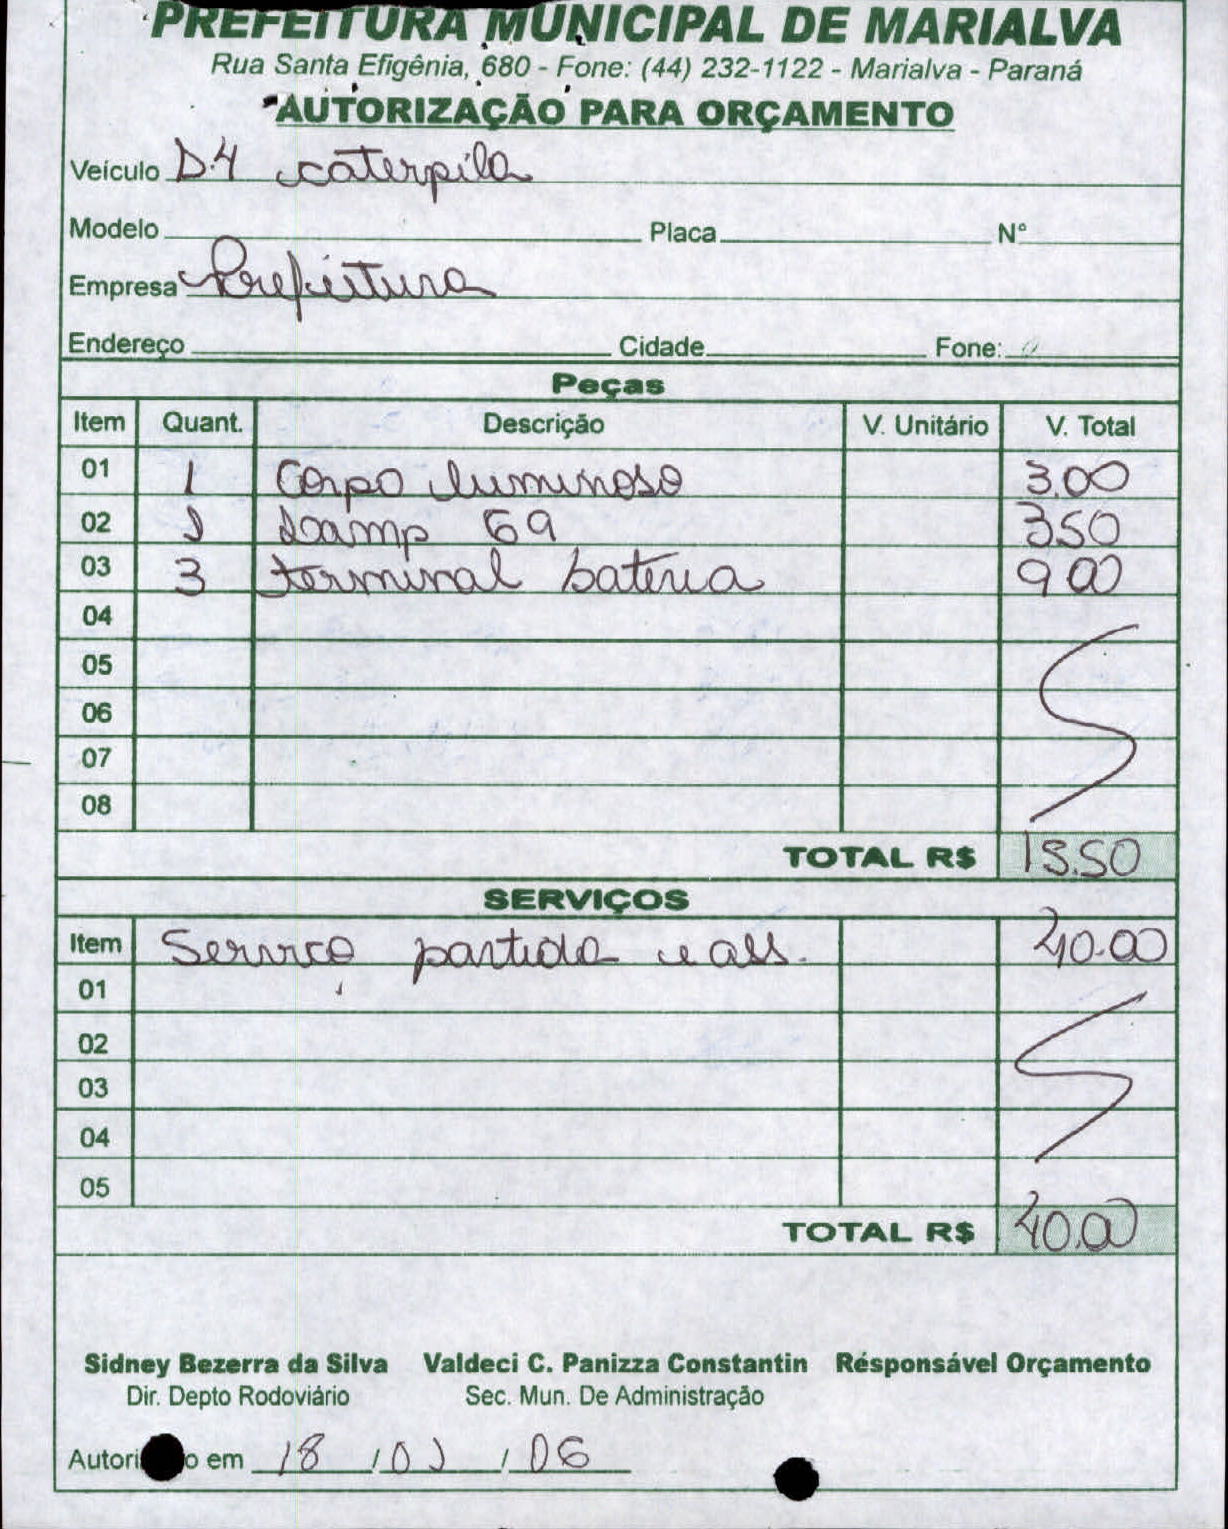 PREFEITURA MUNICIPAL DE MARIALVA
Rua Santa Efigênia, 680 - Fone: (44) 232-1122 - Marialva - Paraná
AUTORIZAÇÃO PARA ORÇAMENTO
Veículo D.4 caterpila
Modelo Placa N°
Empresa Prefeitura
Endereço Cidade Fone:
Peças
Item Quant. Descrição V. Unitário V. Total
01 1 Corpo luminoso 3.00
02 Lamp 69 350
03 3 terminal bateria 9 00
04
05
06
07
08
TOTAL R$ 15.50
SERVIÇOS
Item Serviço partida e ass. 40.00
01
02
03
04
05
TOTAL R$ 40.00
Sidney Bezerra da Silva Valdeci C. Panizza Constantin Responsável Orçamento
Dir. Depto Rodoviário Sec. Mun. De Administração
Autori o em 18 / 01 / 06